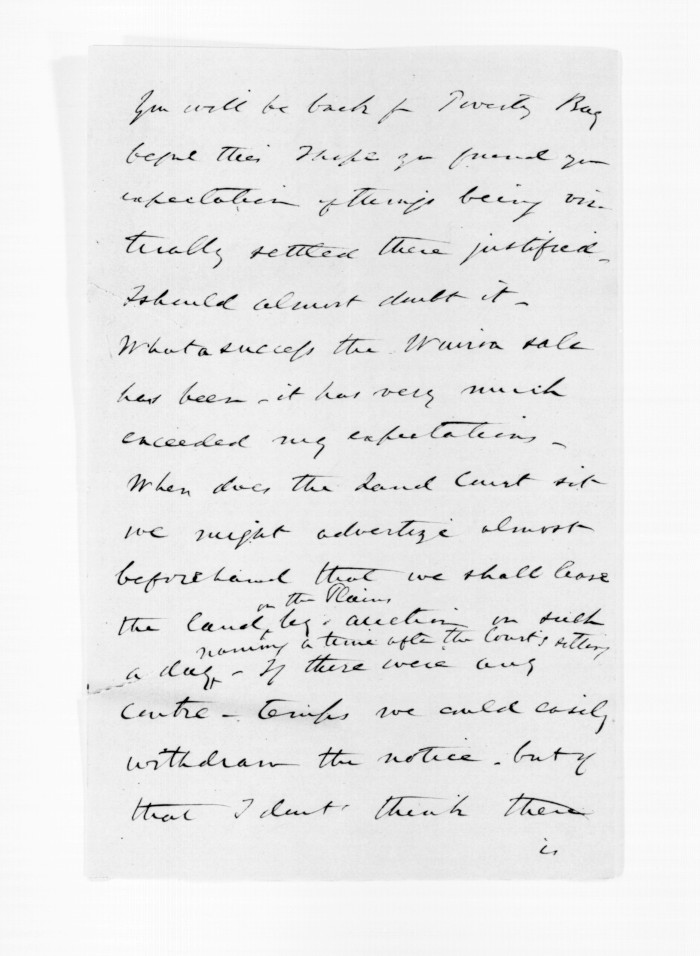 You will be back fr Poverty Bay
before this I hope you found your
expectation of things being vir-
tually settled there justified -
I should almost doubt it -
What a success the Wairoa sale
has been - it has very much
exceeded my expectations -
When does the Land Court sit
we might advertize almost
beforehand that we shall lease
on the Plains
the land by auction on such
naming a time after the Court's sitting
a day, - If there were any
contre-temps we could easily
withdraw the notice - but of
that I dont think there
is